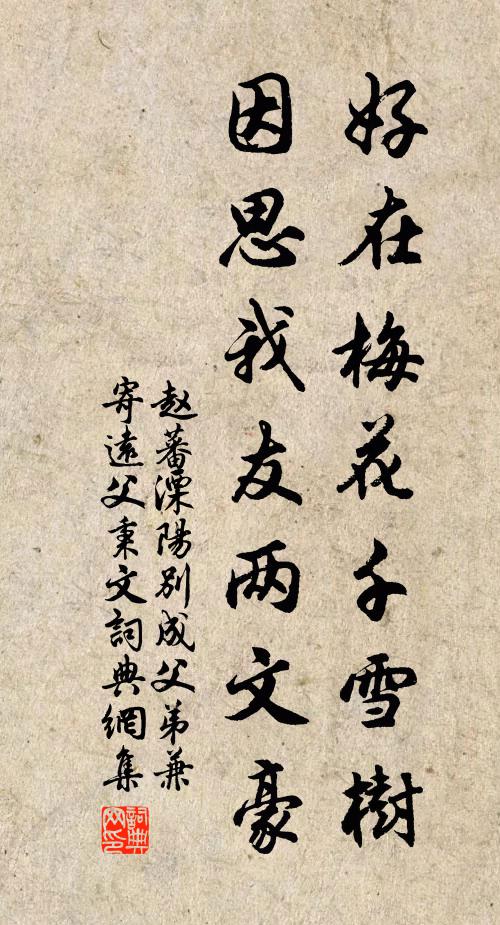 好在梅花千雪樹
因思我友两文豪
赵蕃溧陽别成父弟兼
寄遠父秉文詞典網集
詞典
网印